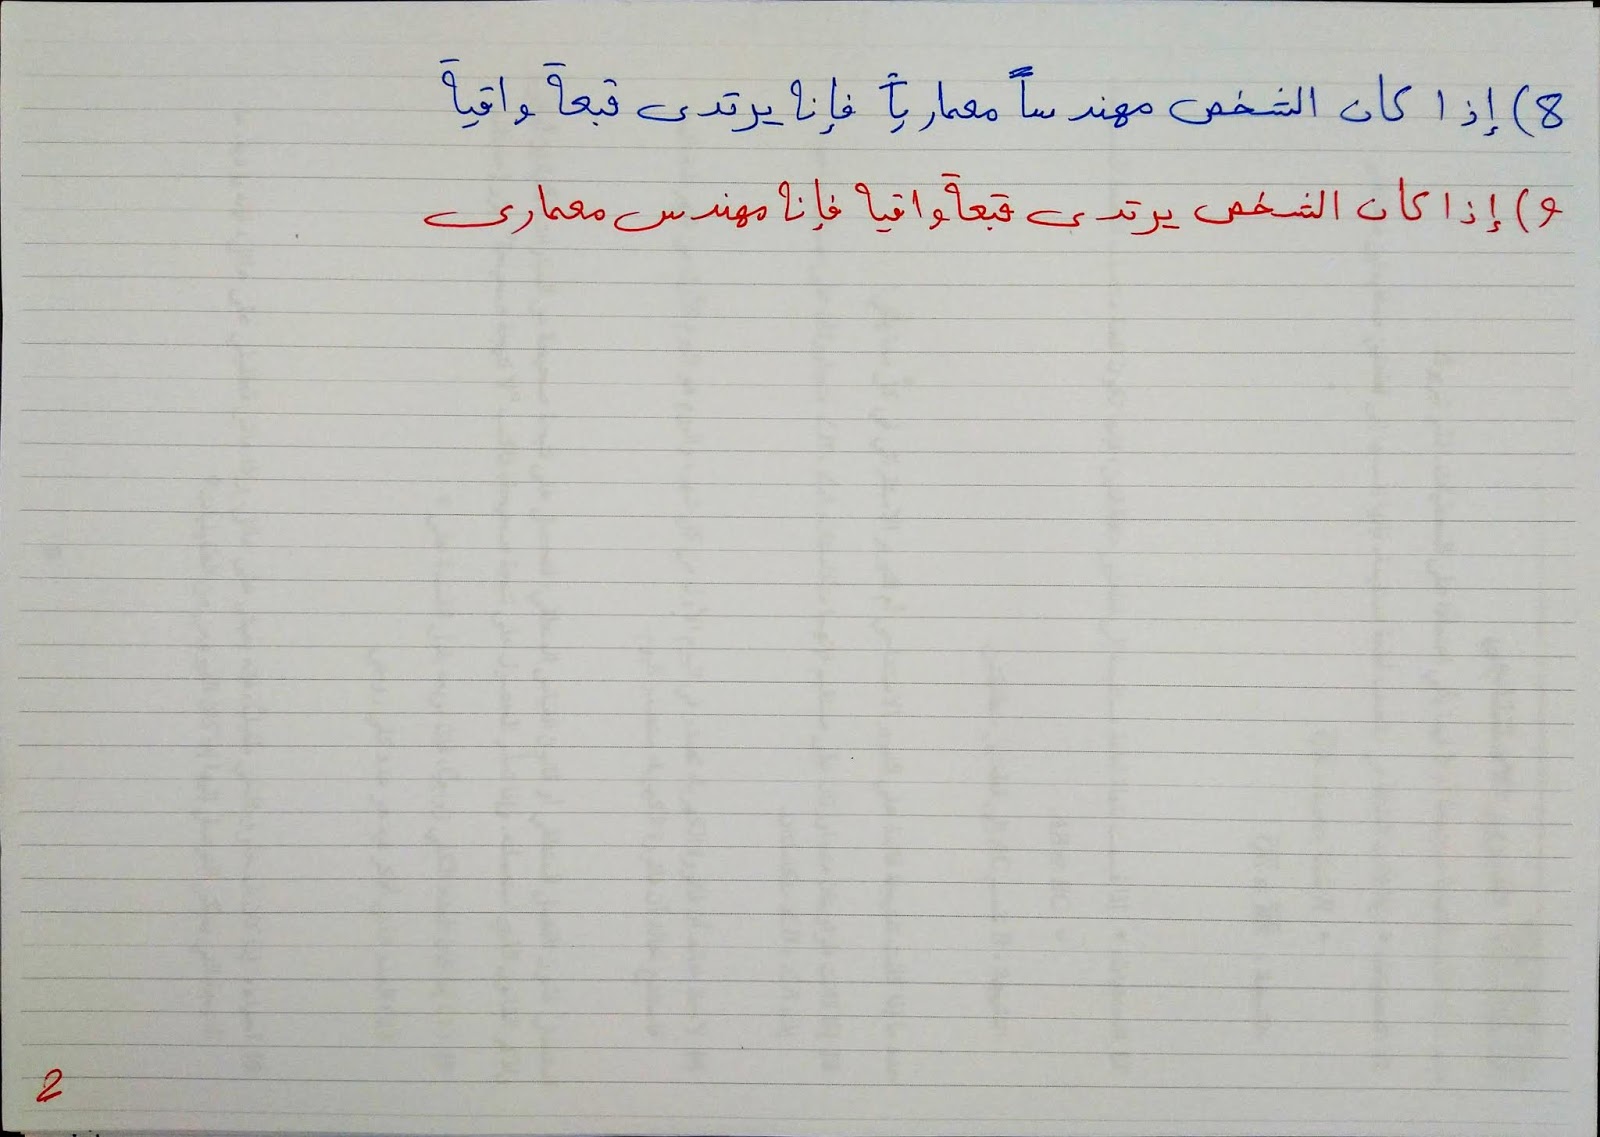 8) إذا كان الشخص مهندساً معمارياً فإنه يرتدى قبعةً واقيةً
9) إذا كان الشخص يرتدى قبعةً واقية فإنه مهندس معمارى
2